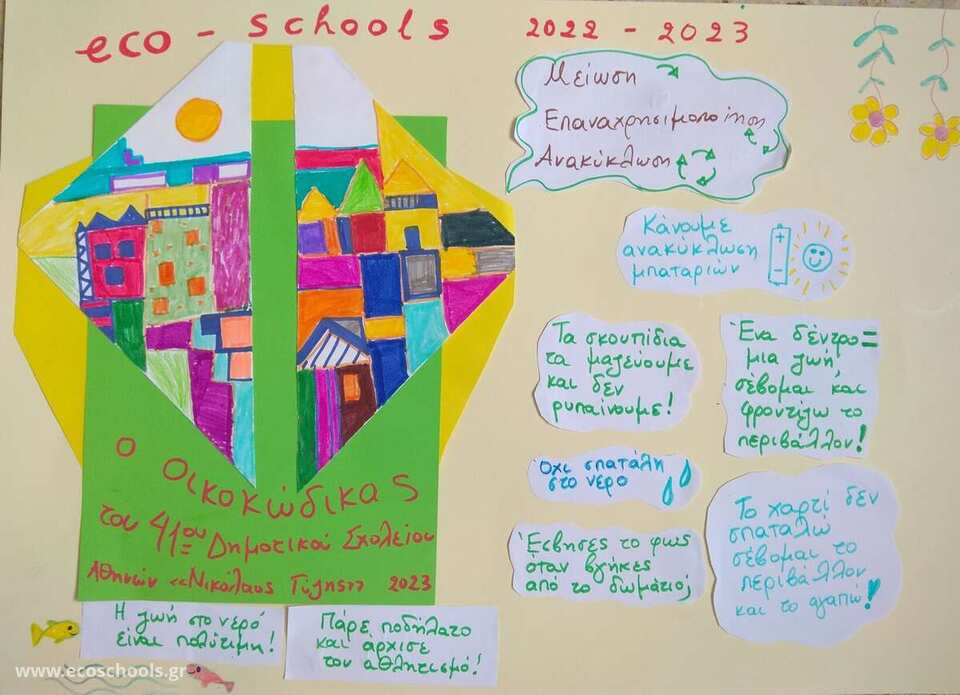 eco - schools 2022 - 2023
Μείωση
Επαναχρησιμοποίηση
Ανακύκλωση
Κάνουμε
ανακύκλωση
μπαταριών
Τα σκουπίδια
τα μαζεύουμε
και δεν
ρυπαίνουμε!
Ένα δέντρο =
μια ζωή,
σέβομαι και
φροντίζω το
περιβάλλον!
Όχι σπατάλη
στο νερό
Το χαρτί δεν
σπαταλώ
σέβομαι το
περιβάλλον
και το αγαπώ!
Έσβησες το φως
όταν βγήκες
από το δωμάτιο;
Ο Οικοκώδικας
του 41ου Δημοτικού Σχολείου
Αθηνών «Νικόλαος Γύζης» 2023
Η ζωή στο νερό
είναι πολύτιμη!
Πάρε ποδήλατο
και άρχισε
τον αθλητισμό!
www.ecoschools.gr